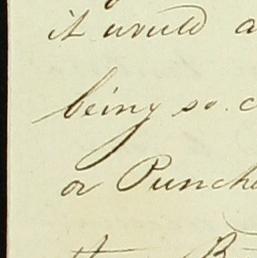 it would a
being so c
or Punche
the B